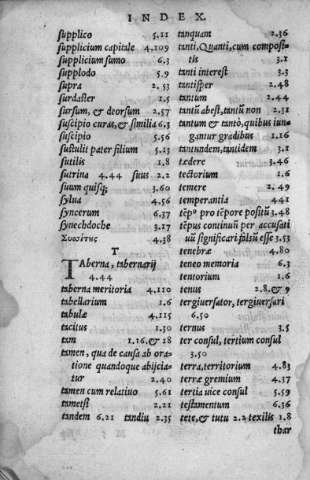 INDEX.
supplico 5.11
supplicium capitale 4.109
supplicium sumo 6.3
supplodo 5.9
supra 2.53
surdaster 1.5
sursum, & deorsum 2.57
suscipio curas, & similia 6.3
suscipio 5.56
sustulit pater filium 5.23
sutilis 1.8
sutrina 4.44 suus 2.2
suum quisq; 3.60
sylua 4.56
syncerum 6.37
synecdoche 3.17
4.38
T
Taberna, tabernarij
4.44
taberna meritoria 4.110
tabellarium 1.6
tabulæ 4.115
tacitus 1.30
tam 1.16.& 18
tamen, qua de causa ab ora-
tione quandoque abijcia-
tur 2.40
tamen cum relatiuo 5.61
tametsi 2.21
tandem 6.21 tandiu 2.35
tanquam 2.36
tanti, Quanti, cum composi-
tis 3.1
tanti interest 3.3
tantisper 2.48
tantum 2.44
tantũ abest, tantũ non 2.31
tantum & tantò, quibus iun-
gantur gradibus 1.16
tantundem, tantidem 3.1
tædere 3.46
tectorium 1.6
temere 2.49
temperantia 4.41
tẽpꝰ pro tẽpore positũ 3.48
tẽpus continuũ per accusati
uũ significari 3.53
tenebræ 4.80
teneo memoria 6.3
tentorium 1.6
tenus 2.8.& 9
tergiuersator, tergiuersari
6.50
ternus 3.5
ter consul, tertium consul
3.50
terra, territorium 4.83
terræ gremium 4.37
tertia uice consul 5.59
testamentum 6.36
tete, & tutu 2.2 textilis 1.8
tbar